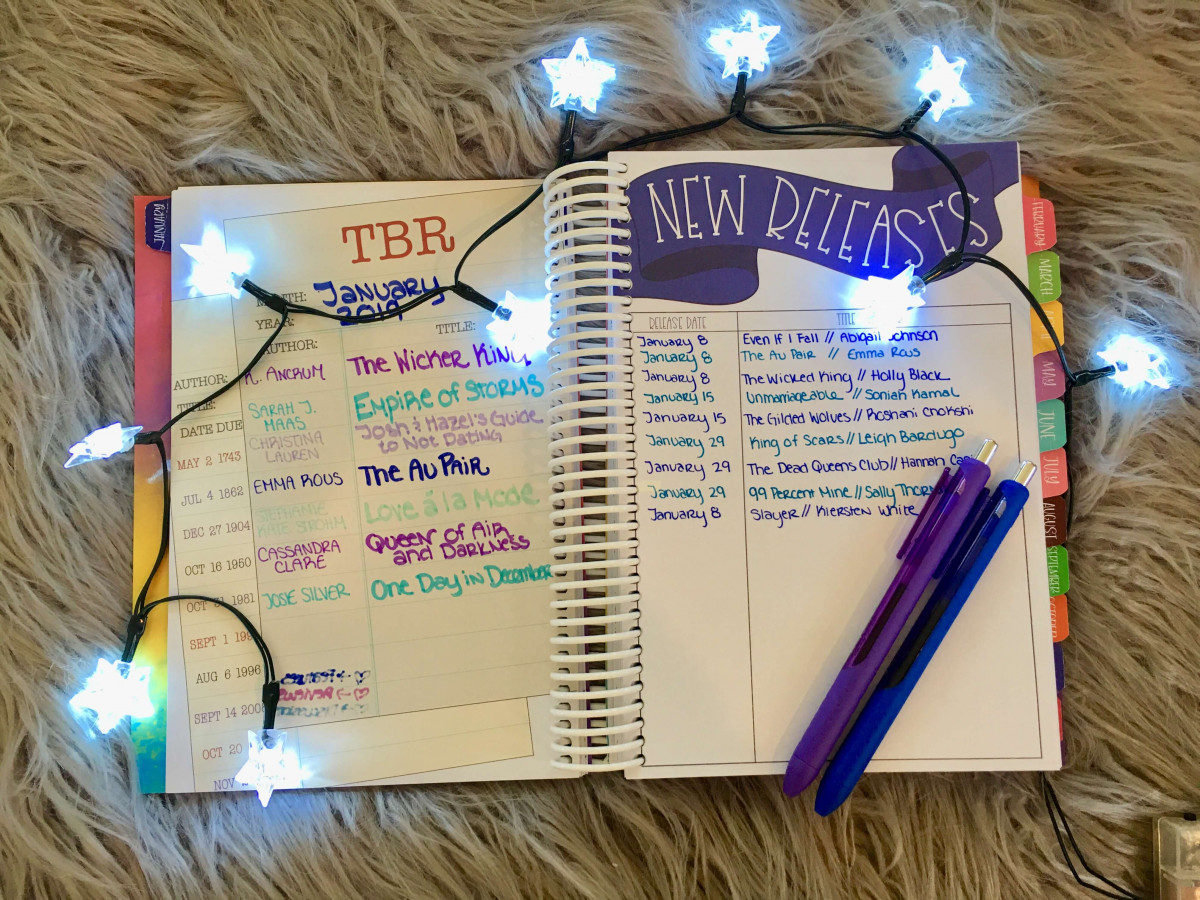 JANUARY
TBR
MONTH: January
YEAR: 2019
AUTHOR: TITLE:
AUTHOR: K. Ancrum The Wicker King
TITLE:
DATE DUE Sarah J. Maas Empire of Storms
MAY 2 1743 Christina Lauren Josh & Hazel's Guide to Not Dating
JUL 4 1862 Emma Rous The Au Pair
DEC 27 1904 Stephanie Kate Strohm Love á la Mode
OCT 16 1950 Cassandra Clare Queen of Air and Darkness
OCT 31 1981 Josie Silver One Day in December
SEPT 1
AUG 6 1996
SEPT 14
OCT 20
NOV
NEW RELEASES
RELEASE DATE TITLE
January 8 Even If I Fall // Abigail Johnson
January 8 The Au Pair // Emma Rous
January 8 The Wicked King // Holly Black
January 15 Unmarriageable // Soniah Kamal
January 15 The Gilded Wolves // Roshani Chokshi
January 29 King of Scars // Leigh Bardugo
January 29 The Dead Queens Club // Hannah
January 29 99 Percent Mine // Sally
January 8 Slayer // Kiersten White
FEBRUARY
MARCH
MAY
JUNE
JULY
AUGUST
SEPTEMBER
OCTOBER